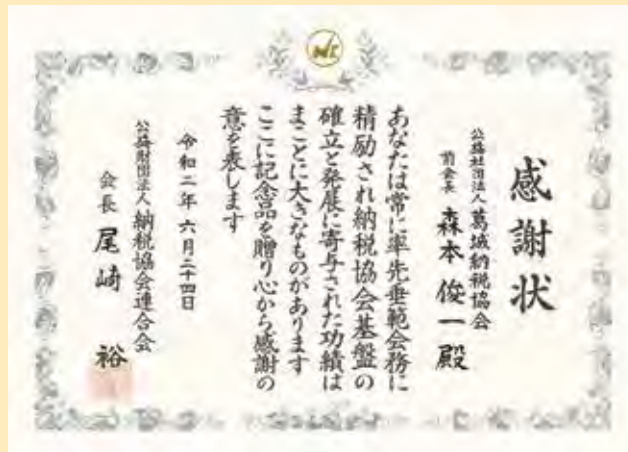 感謝状
公益社団法人葛城納税協会
前会長 森本俊一殿
あなたは常に率先垂範会務に
精励され納税協会基盤の
確立と発展に寄与された功績は
まことに大きなものがあります
ここに記念品を贈り心から感謝の
意を表します
令和二年六月二十四日
公益財団法人 納税協会連合会
会長 尾崎 裕